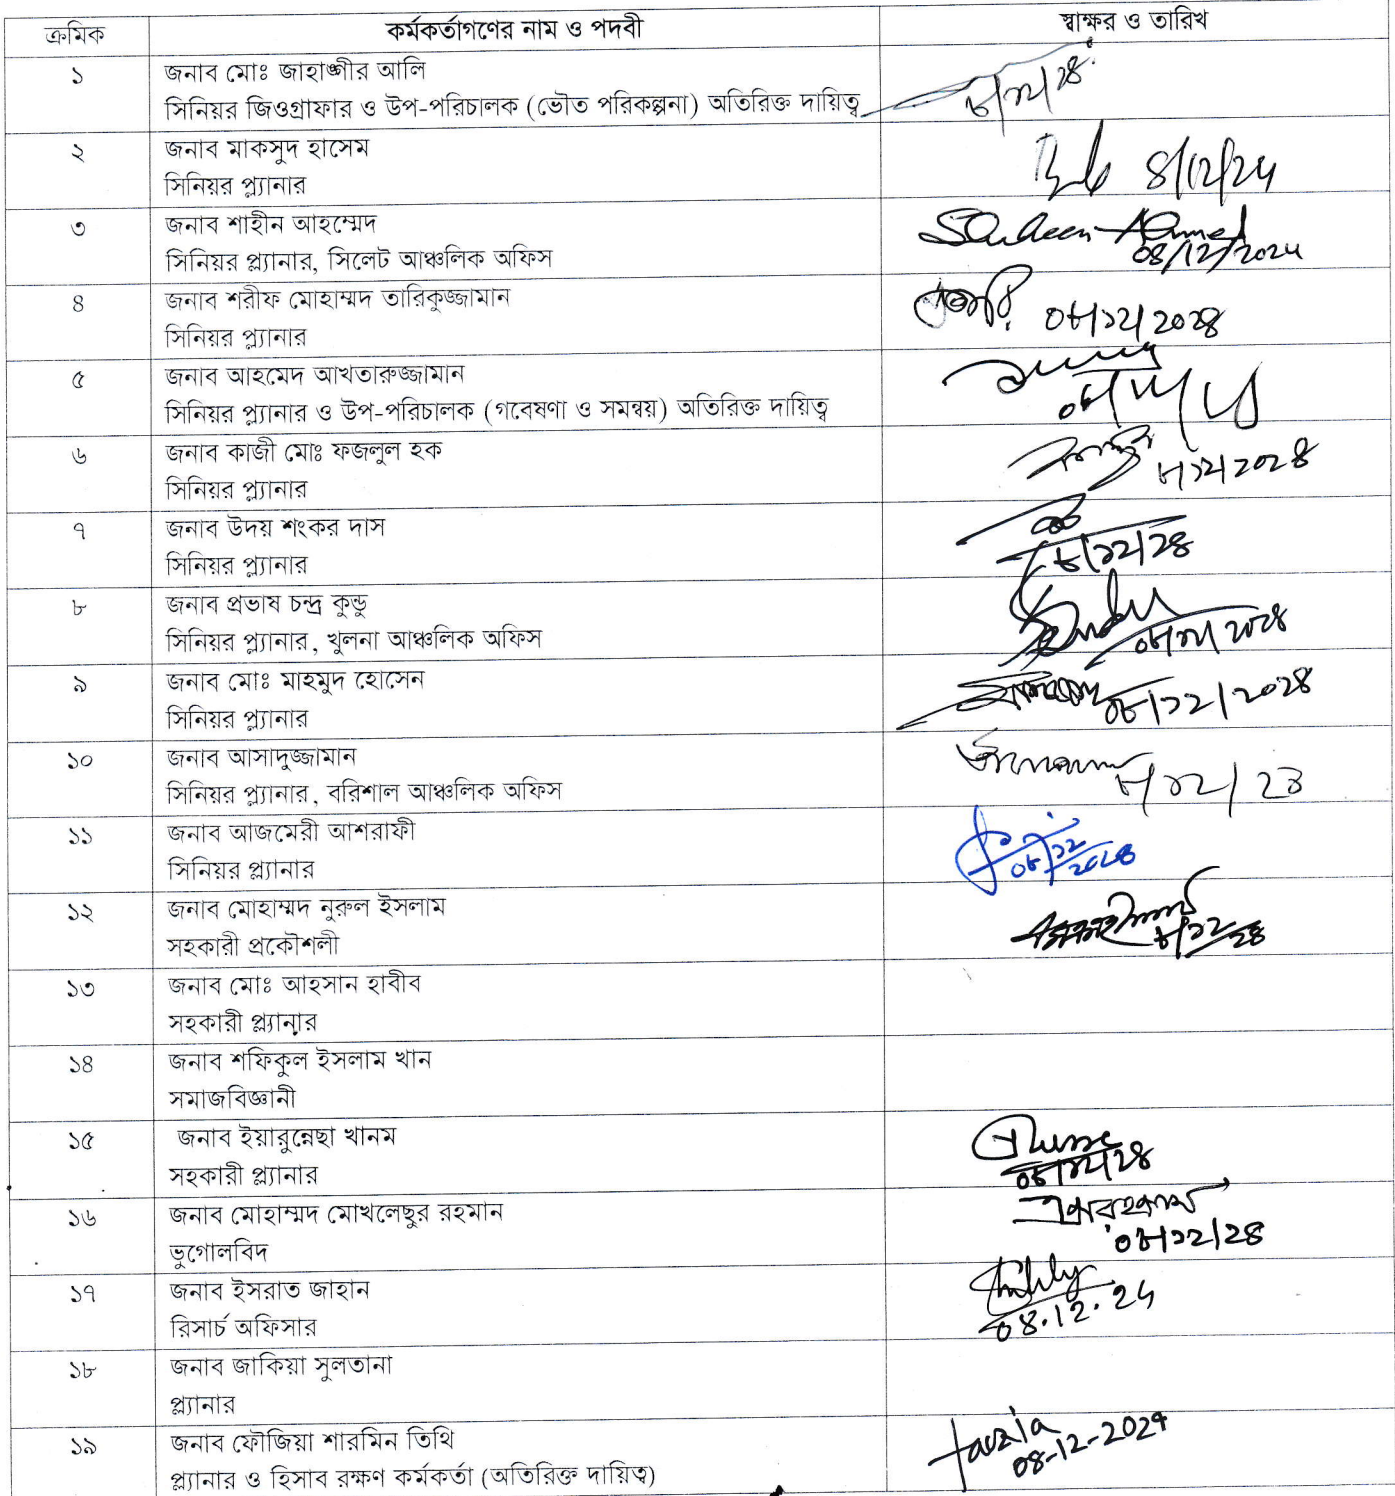 ক্রমিক কর্মকর্তাগণের নাম ও পদবী স্বাক্ষর ও তারিখ
১ জনাব মোঃ জাহাঙ্গীর আলি
সিনিয়র জিওগ্রাফার ও উপ-পরিচালক (ভৌত পরিকল্পনা) অতিরিক্ত দায়িত্ব ৮/১২/২৪
২ জনাব মাকসুদ হাসেম
সিনিয়র প্ল্যানার 8/12/24
৩ জনাব শাহীন আহম্মেদ Shaheen Ahmed
সিনিয়র প্ল্যানার, সিলেট আঞ্চলিক অফিস 08/12/2024
৪ জনাব শরীফ মোহাম্মদ তারিকুজ্জামান
সিনিয়র প্ল্যানার ০৮/১২/২০২৪
৫ জনাব আহমেদ আখতারুজ্জামান
সিনিয়র প্ল্যানার ও উপ-পরিচালক (গবেষণা ও সমন্বয়) অতিরিক্ত দায়িত্ব
৬ জনাব কাজী মোঃ ফজলুল হক
সিনিয়র প্ল্যানার ৮/১২/২০২৪
৭ জনাব উদয় শংকর দাস
সিনিয়র প্ল্যানার ৮/১২/২৪
৮ জনাব প্রভাষ চন্দ্র কুন্ডু
সিনিয়র প্ল্যানার, খুলনা আঞ্চলিক অফিস ০৮/১২/২০২৪
৯ জনাব মোঃ মাহমুদ হোসেন
সিনিয়র প্ল্যানার ০৮/১২/২০২৪
১০ জনাব আসাদুজ্জামান
সিনিয়র প্ল্যানার, বরিশাল আঞ্চলিক অফিস
১১ জনাব আজমেরী আশরাফী
সিনিয়র প্ল্যানার ০৮/১২/২০২৪
১২ জনাব মোহাম্মদ নুরুল ইসলাম
সহকারী প্রকৌশলী ৮/১২/২৪
১৩ জনাব মোঃ আহসান হাবীব
সহকারী প্ল্যানার
১৪ জনাব শফিকুল ইসলাম খান
সমাজবিজ্ঞানী
১৫ জনাব ইয়ারুন্নেছা খানম
সহকারী প্ল্যানার ০৮/১২/২৪
১৬ জনাব মোহাম্মদ মোখলেছুর রহমান
ভুগোলবিদ ০৮/১২/২৪
১৭ জনাব ইসরাত জাহান
রিসার্চ অফিসার 08.12.24
১৮ জনাব জাকিয়া সুলতানা
প্ল্যানার
১৯ জনাব ফৌজিয়া শারমিন তিথি fauzia
প্ল্যানার ও হিসাব রক্ষণ কর্মকর্তা (অতিরিক্ত দায়িত্ব) 08-12-2024